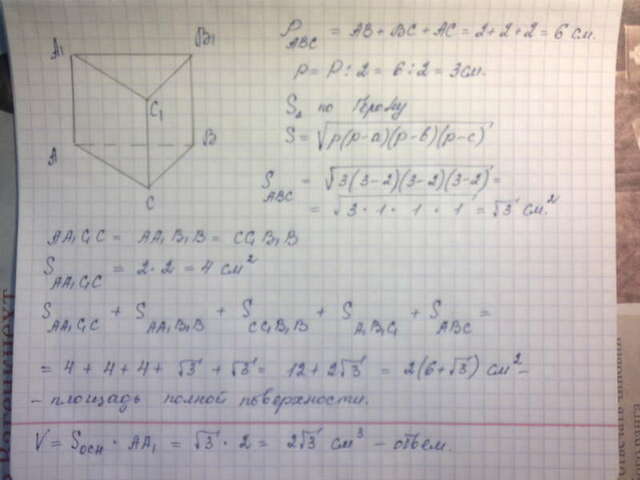 A₁
B₁
C₁
A
B
C
P ABC = AB + BC + AC = 2 + 2 + 2 = 6 см.
p = P : 2 = 6 : 2 = 3 см.
S△ по Герону
S = √p(p-a)(p-b)(p-c)
S ABC = √3(3-2)(3-2)(3-2) =
= √3 · 1 · 1 · 1 = √3 см²
AA₁C₁C = AA₁B₁B = CC₁B₁B
S AA₁C₁C = 2 · 2 = 4 см²
S AA₁C₁C + S AA₁B₁B + S CC₁B₁B + S A₁B₁C₁ + S ABC =
= 4 + 4 + 4 + √3 + √3 = 12 + 2√3 = 2(6 + √3) см² –
– площадь полной поверхности.
V = S осн · AA₁ = √3 · 2 = 2√3 см³ – объем.